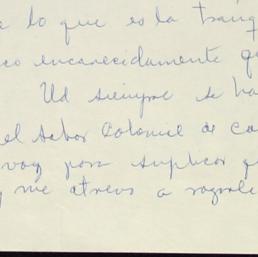 a lo que es la tranq
co encarecidamente q
Ud siempre se ha
el señor Colonial de ca
voy para suplicar q
y me atrevo a rogarle